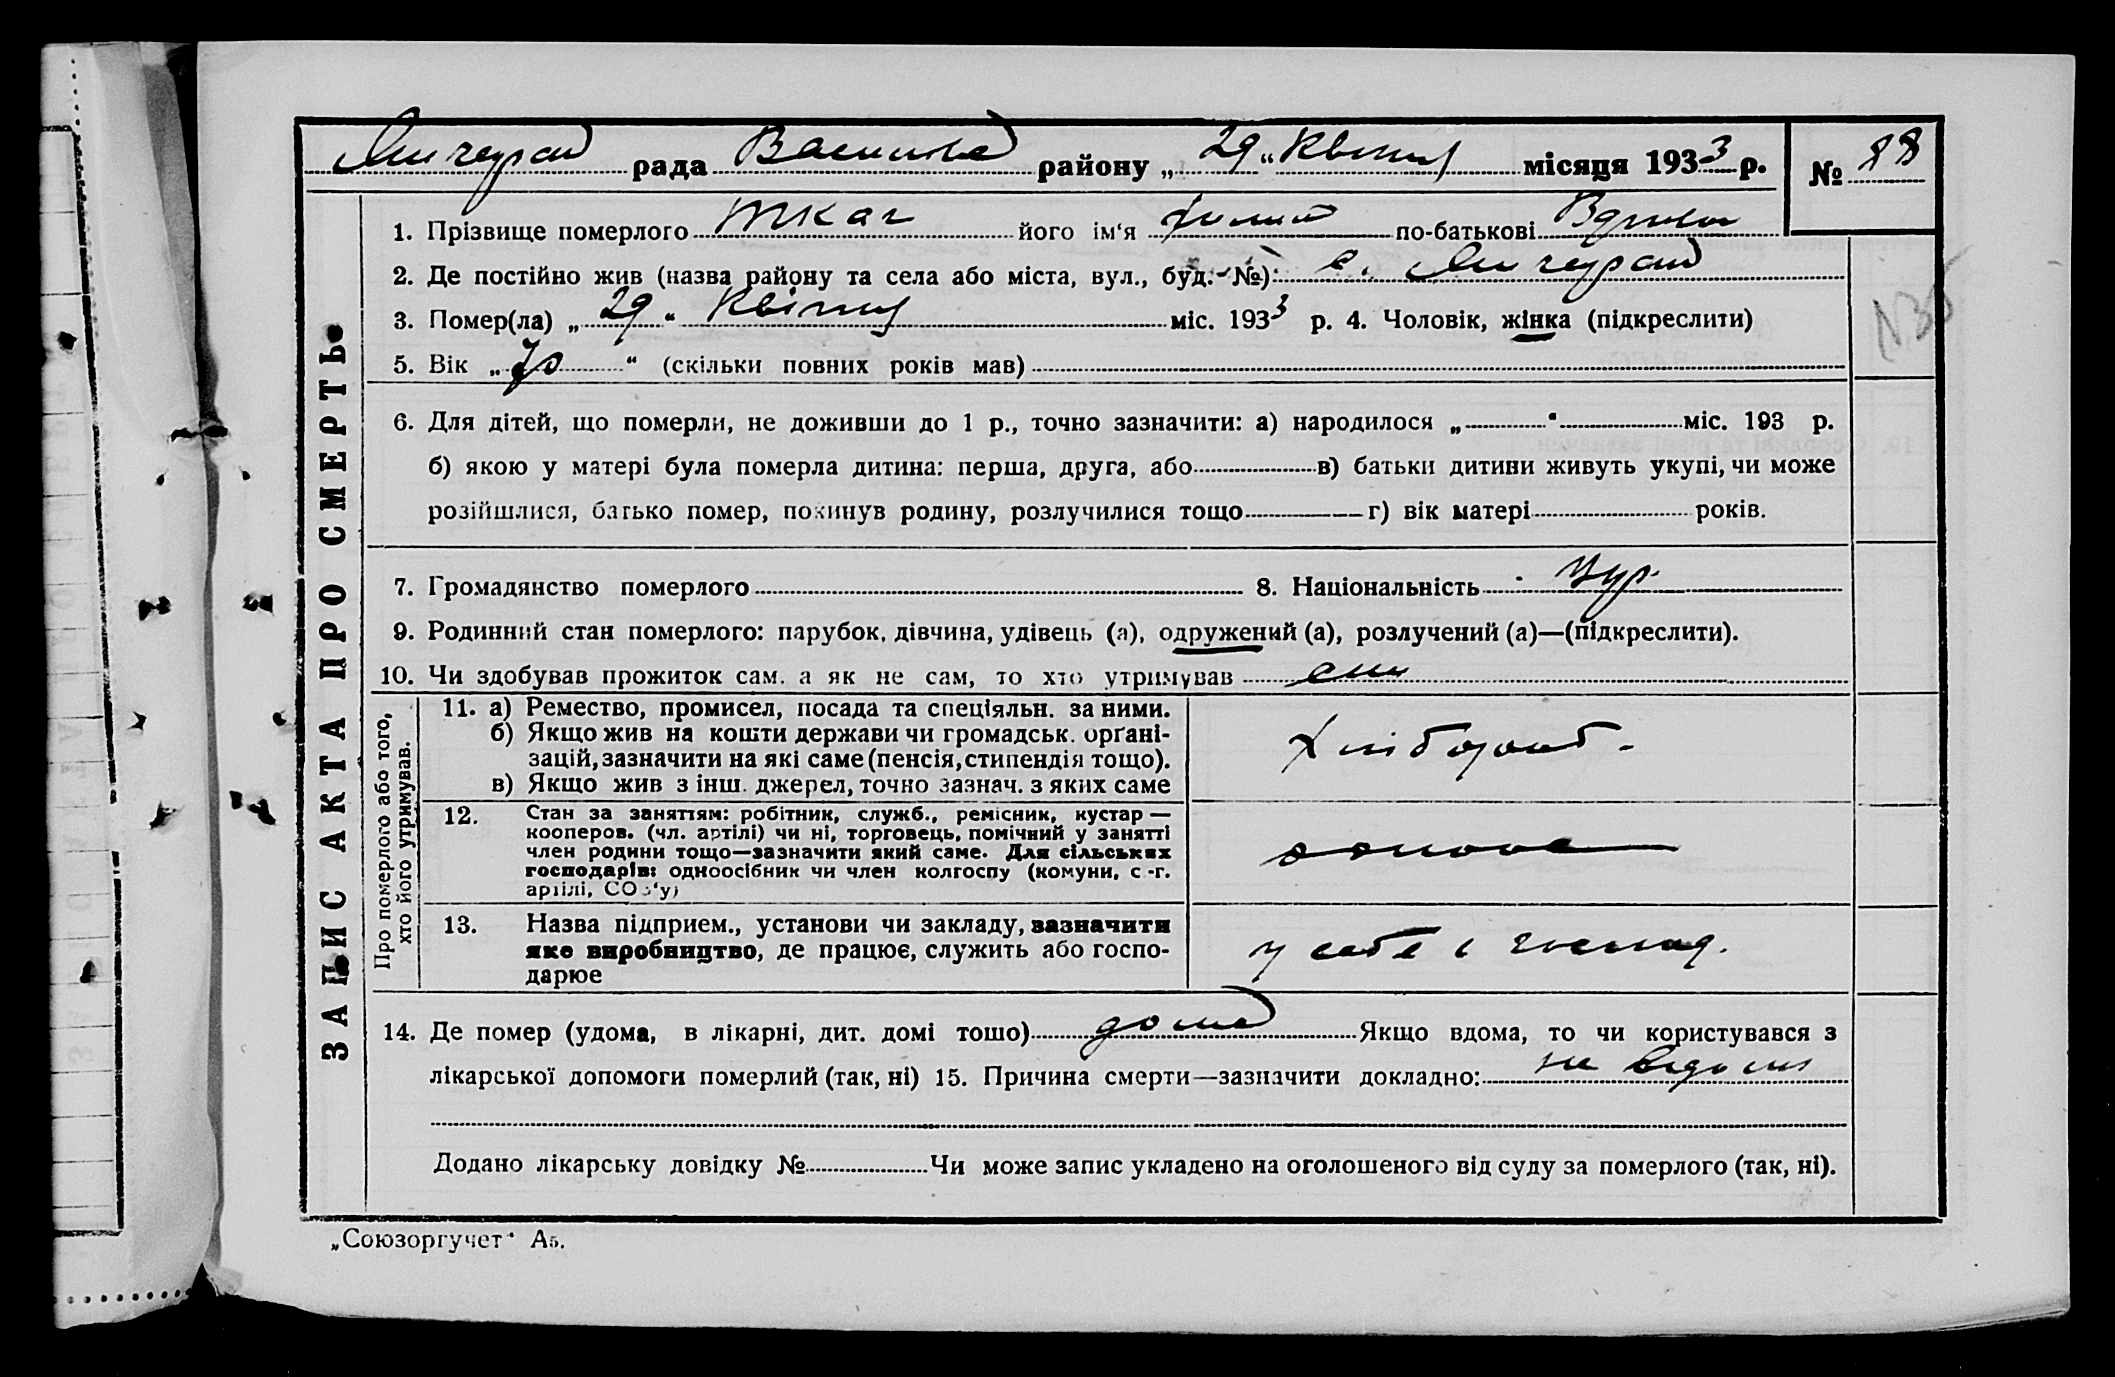 рада району „29“ Квітня місяця 1933 р. № 88
ЗАПИС АКТА ПРО СМЕРТЬ
1. Прізвище померлого Ткач його ім'я по-батькові
2. Де постійно жив (назва району та села або міста, вул., буд. №): с.
3. Помер(ла) „29“ Квітня міс. 1933 р. 4. Чоловік, жінка (підкреслити)
5. Вік „70“ (скільки повних років мав)
6. Для дітей, що померли, не доживши до 1 р., точно зазначити: а) народилося „ “ міс. 193 р.
б) якою у матері була померла дитина: перша, друга, або в) батьки дитини живуть укупі, чи може
розійшлися, батько помер, покинув родину, розлучилися тощо г) вік матері років.
7. Громадянство померлого 8. Національність Укр.
9. Родинний стан померлого: парубок, дівчина, удівець (а), одружений (а), розлучений (а)—(підкреслити).
10. Чи здобував прожиток сам, а як не сам, то хто утримував
Про померлого або того,
хто його утримував.
11. а) Ремество, промисел, посада та спеціяльн. за ними.
б) Якщо жив на кошти держави чи громадськ. органі-
зацій, зазначити на які саме (пенсія, стипендія тощо).
в) Якщо жив з інш. джерел, точно зазнач. з яких саме
Хлібороб.
12. Стан за заняттям: робітник, служб., ремісник, кустар —
кооперов. (чл. артілі) чи ні, торговець, помічний у занятті
член родини тощо—зазначити який саме. Для сільських
господарів: одноосібник чи член колгоспу (комуни, с.-г.
артілі, СОЗ'у)
13. Назва підприєм., установи чи закладу, зазначити
яке виробництво, де працює, служить або госпо-
дарює
у себе в господ.
14. Де помер (удома, в лікарні, дит. домі тошо) дома Якщо вдома, то чи користувався з
лікарської допомоги померлий (так, ні) 15. Причина смерти—зазначити докладно: не відомо
Додано лікарську довідку № Чи може запис укладено на оголошеного від суду за померлого (так, ні).
„Союзоргучет“ А5.